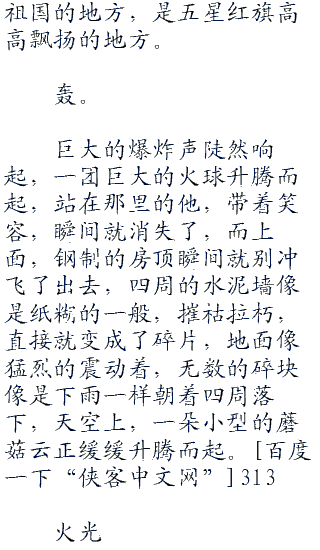 祖国的地方，是五星红旗高
高飘扬的地方。
轰。
巨大的爆炸声陡然响
起，一团巨大的火球升腾而
起，站在那里的他，带着笑
容，瞬间就消失了，而上
面，钢制的房顶瞬间就别冲
飞了出去，四周的水泥墙像
是纸糊的一般，摧枯拉朽，
直接就变成了碎片，地面像
猛烈的震动着，无数的碎块
像是下雨一样朝着四周落
下，天空上，一朵小型的蘑
菇云正缓缓升腾而起。[百度
一下“侠客中文网”]313
火光